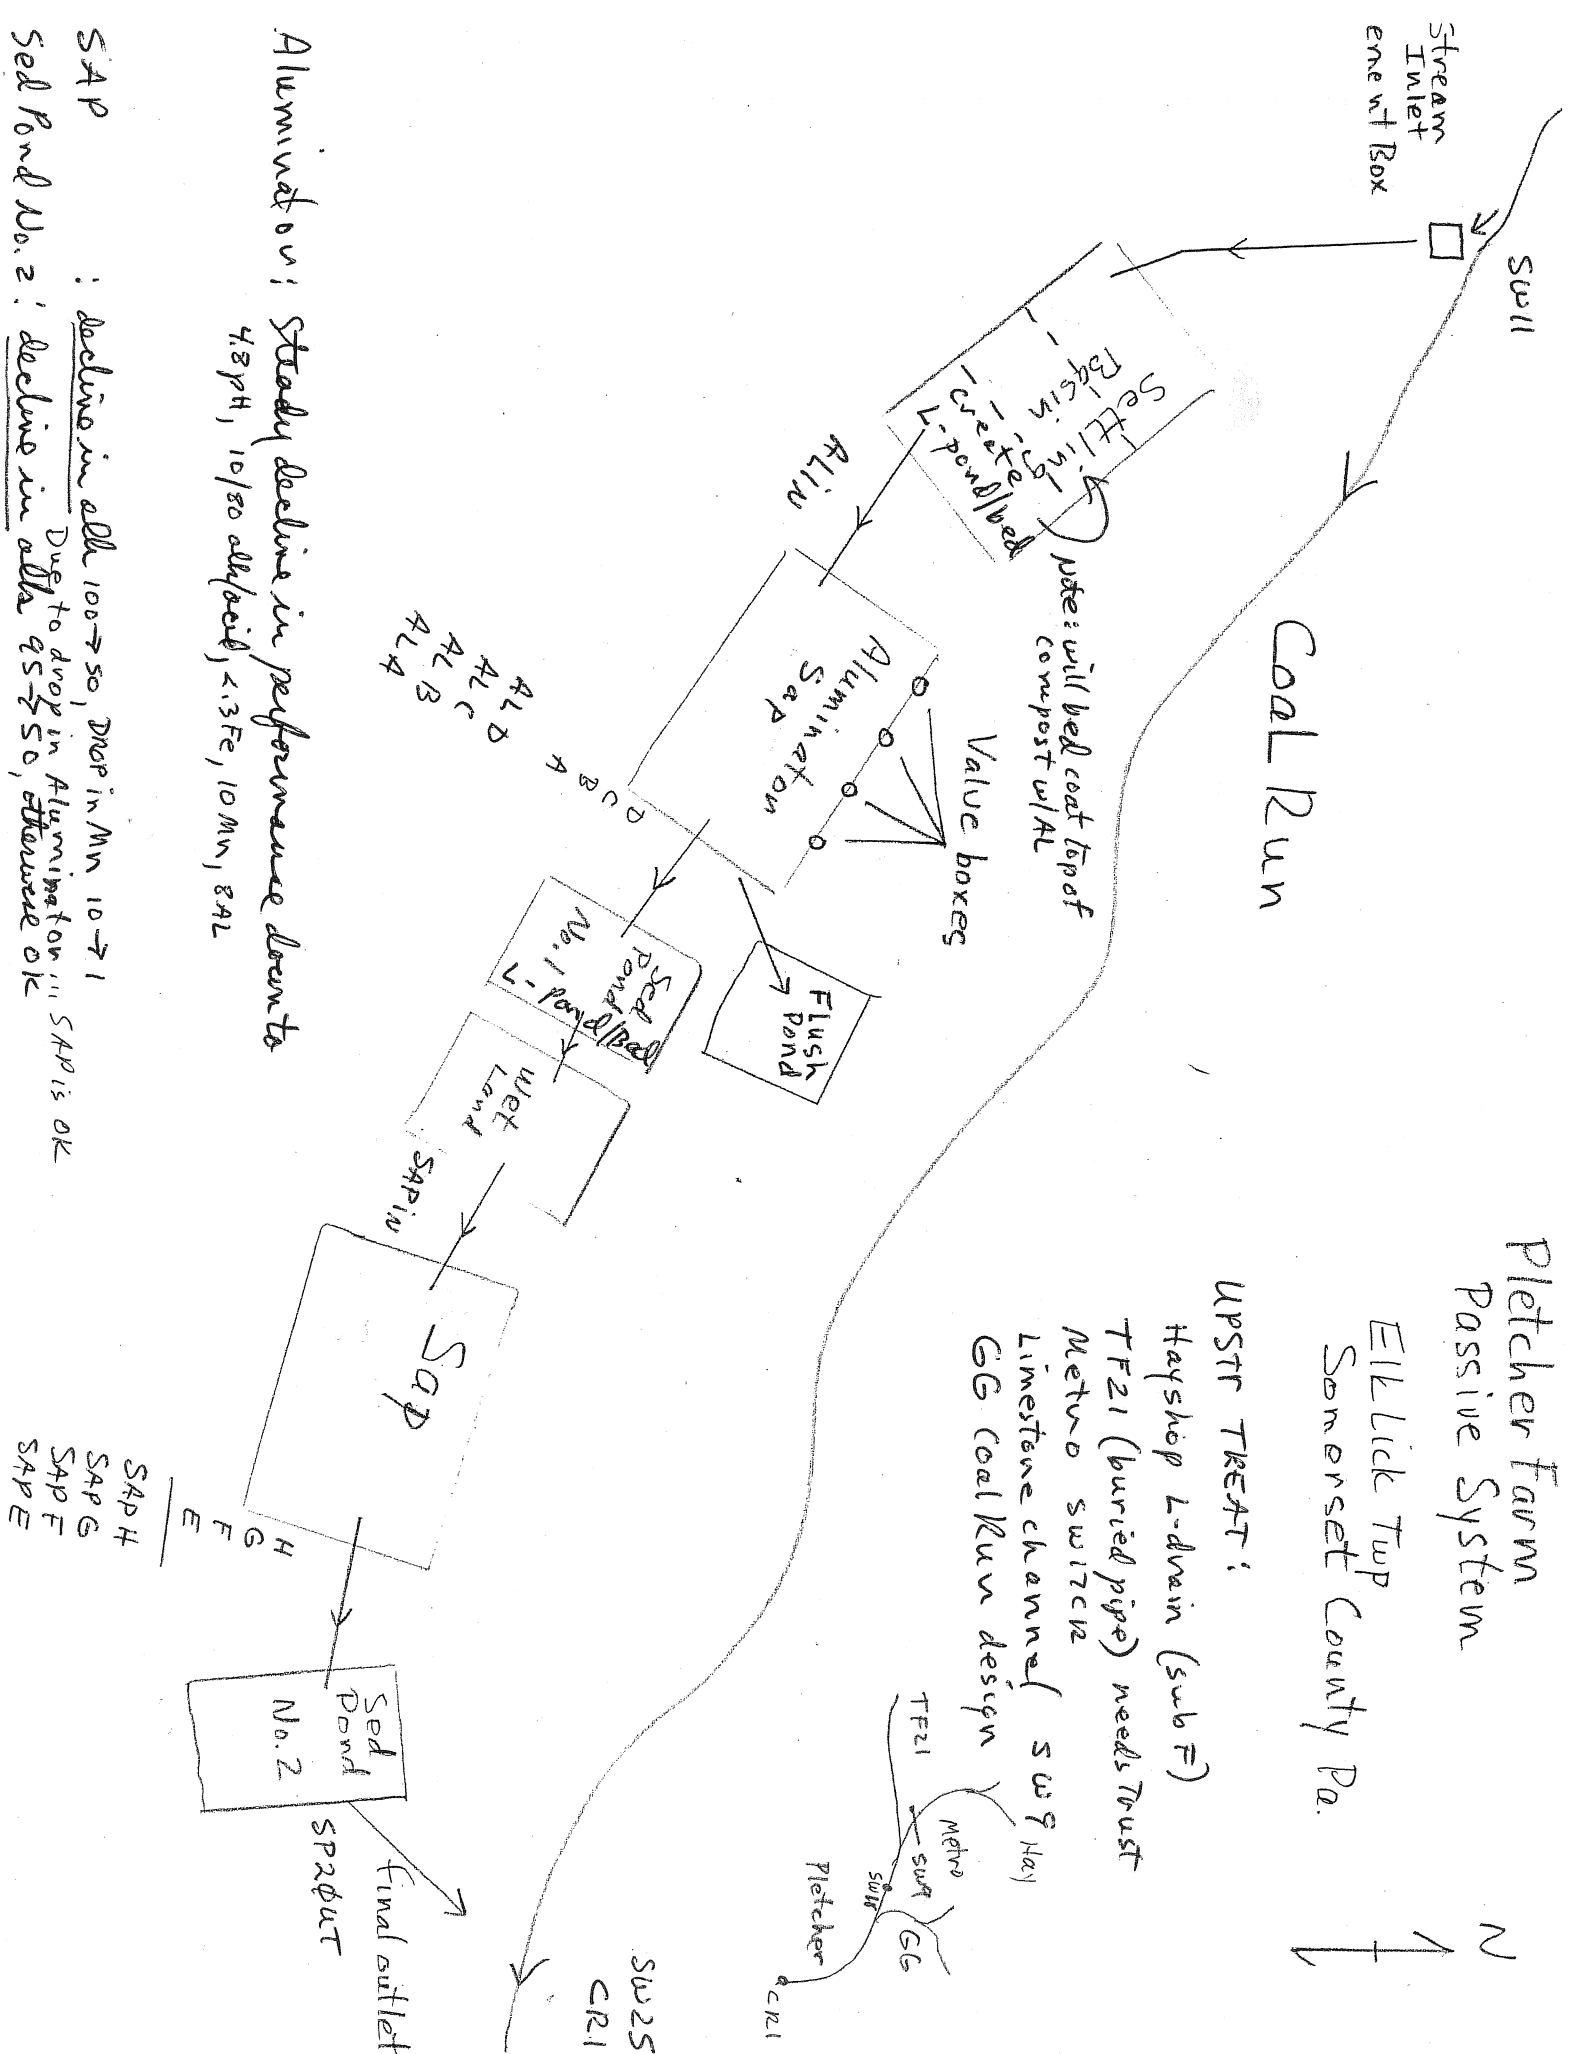 Pletcher Farm
Passive System
Elk Lick Twp
Somerset County Pa.
N
UPSTr TREAT:
Hayshop L-drain (sub F)
TF21 (buried pipe) needs Trust
Metro SW17CR
Limestone channel SW9
GG Coal Run design
TF21
Hay
Metro
SW9
SW18
GG
Pletcher
CR1
Stream
Inlet
ement Box
SW11
Coal Run
Settling
Basin
create
L-pond/bed
Note: will bed coat top of
compost w/AL
ALin
Aluminaton
Sap
Value boxes
D
C
B
A
ALD
ALC
ALB
ALA
Flush
Pond
Sed
Pond
No.1
L-pond/Bed
Wet
Land
SAPin
Sap
H
G
F
E
SAPH
SAPG
SAPF
SAPE
Sed
Pond
No.2
final outlet
SP2OUT
SW25
CR1
Aluminaton: Steady decline in performance down to
4.8 pH, 10/80 alk/acid, <.3 Fe, 10 Mn, 8 AL
SAP : decline in alk 100→50, Drop in Mn 10→1
Due to drop in Aluminaton... SAP is OK
Sed Pond No.2: decline in alk 95→50, otherwise OK